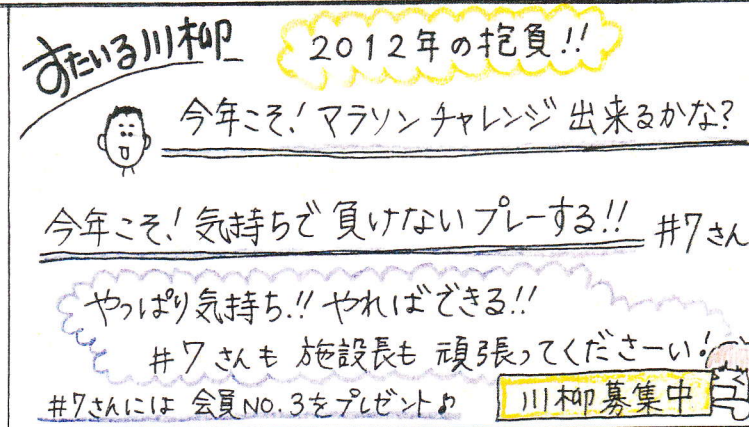 すたいる川柳
2012年の抱負!!
今年こそ!マラソンチャレンジ出来るかな?
今年こそ!気持ちで負けないプレーする!! #7さん
やっぱり気持ち!!やればできる!!
#7さんも施設長も頑張ってくださーい!
#7さんには会員NO.3をプレゼント♪
川柳募集中